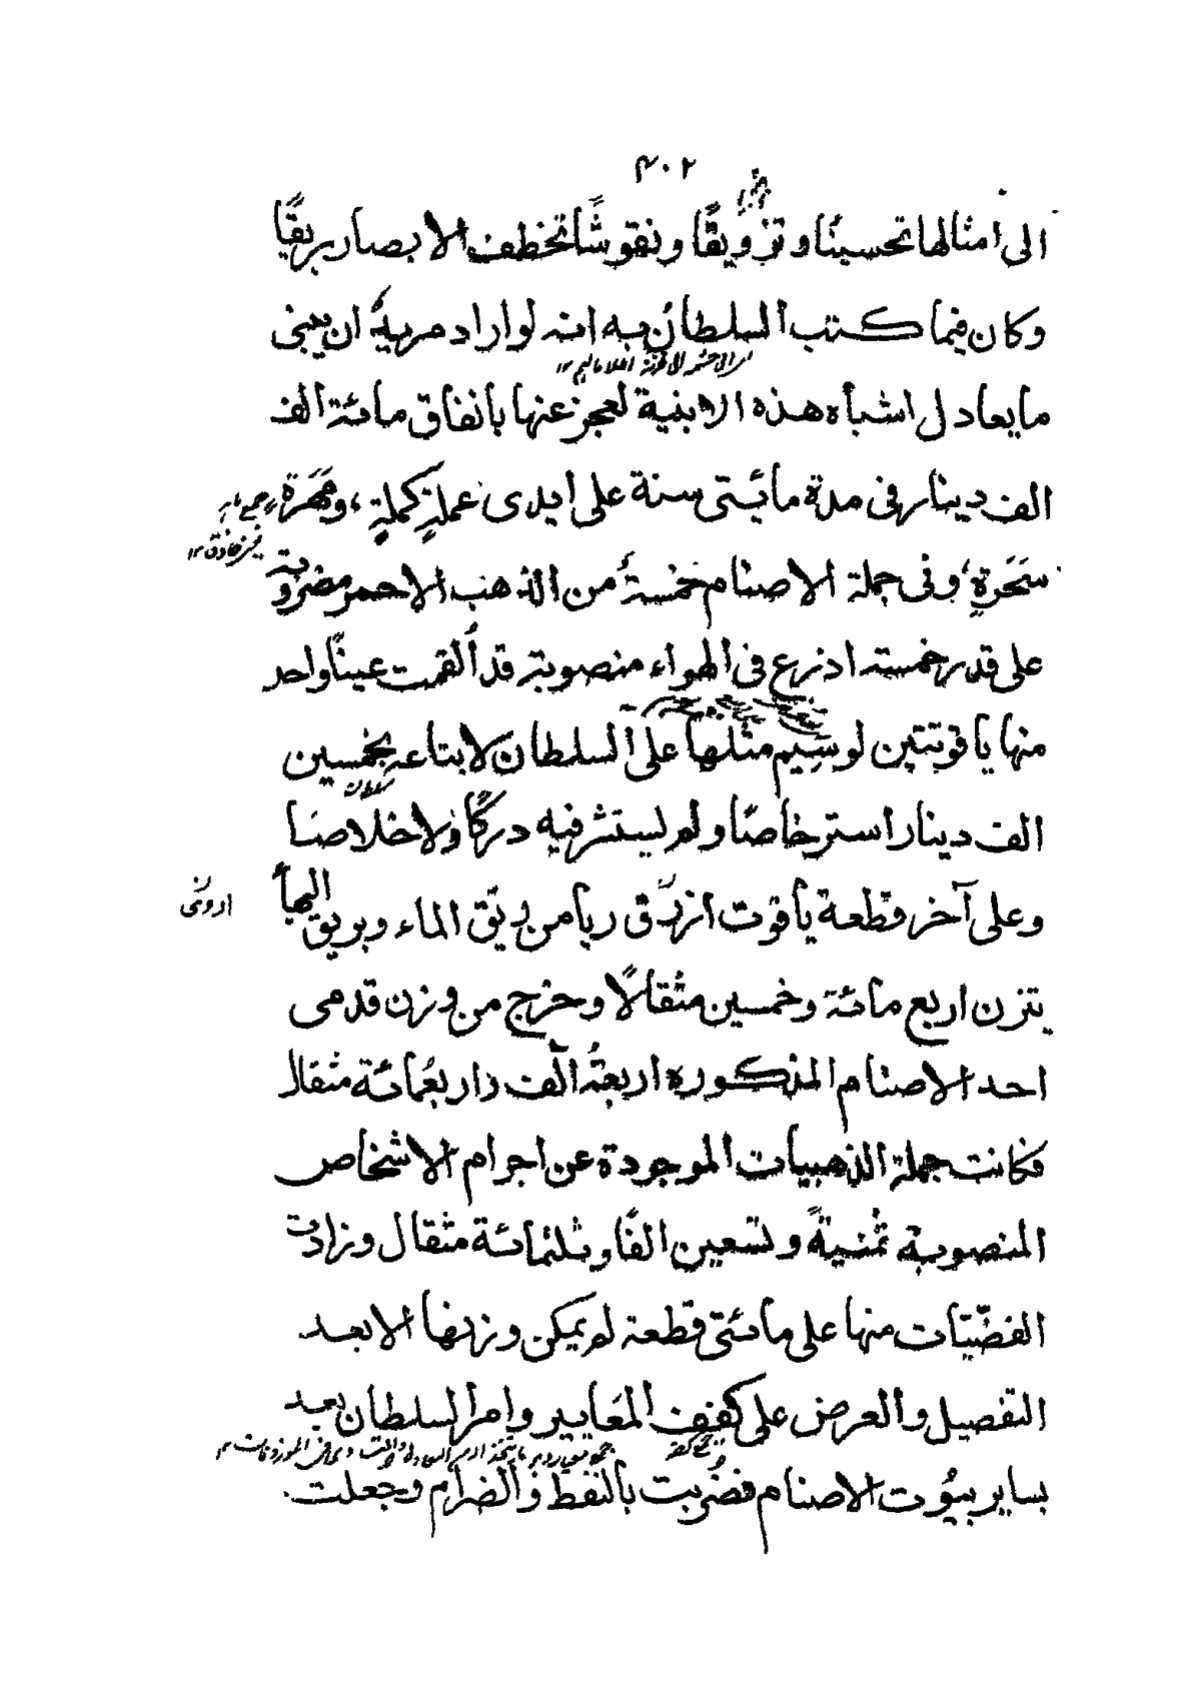 ٤٠٢
الى امثالها تحسينًا وتزويقًا ونقوشًا تخطف الابصار بريقًا
وكان فيما كتب السلطان به انه لو اراد مريدٌ ان يبنى
ما يعادل اشباه هذه الابنية لعجز عنها بانفاق مائة الف
الف دينار فى مدة مائتى سنة على ايدى عملةٍ كملةٍ، ومَهَرَةٍ
سَحَرةٍ، وفى جملة الاصنام خمسةٌ من الذهب الاحمر مضروبة
على قدر خمسة اذرع فى الهواء منصوبة قد ألقمت عينًا واحد
منها ياقوتتين لوسِيم مثلها على السلطان لابتاعه بخمسين
الف دينار استرخاصًا ولم يستشر فيه دركًا ولا خلاصًا
وعلى آخر قطعة ياقوت ازرق ريا من ريق الماء وبريق البهأ
يتزن اربع مائة وخمسين مثقالًا وخرج من وزن قدمى
احد الاصنام المذكوره اربعةُ آلف واربعُمائة مثقال
فكانت جملة الذهبيات الموجودة عن اجرام الاشخاص
المنصوبة ثمنيةً وتسعين الفًا وثلثمائة مثقال وزادت
الفضّيّات منها على مائتى قطعة لم يمكن وزنها الا بعد
التفصيل والعرض على كفف المعايير وامر السلطان بعد
بساير بيُوت الاصنام فضربت بالنفط والضرام وجعلت